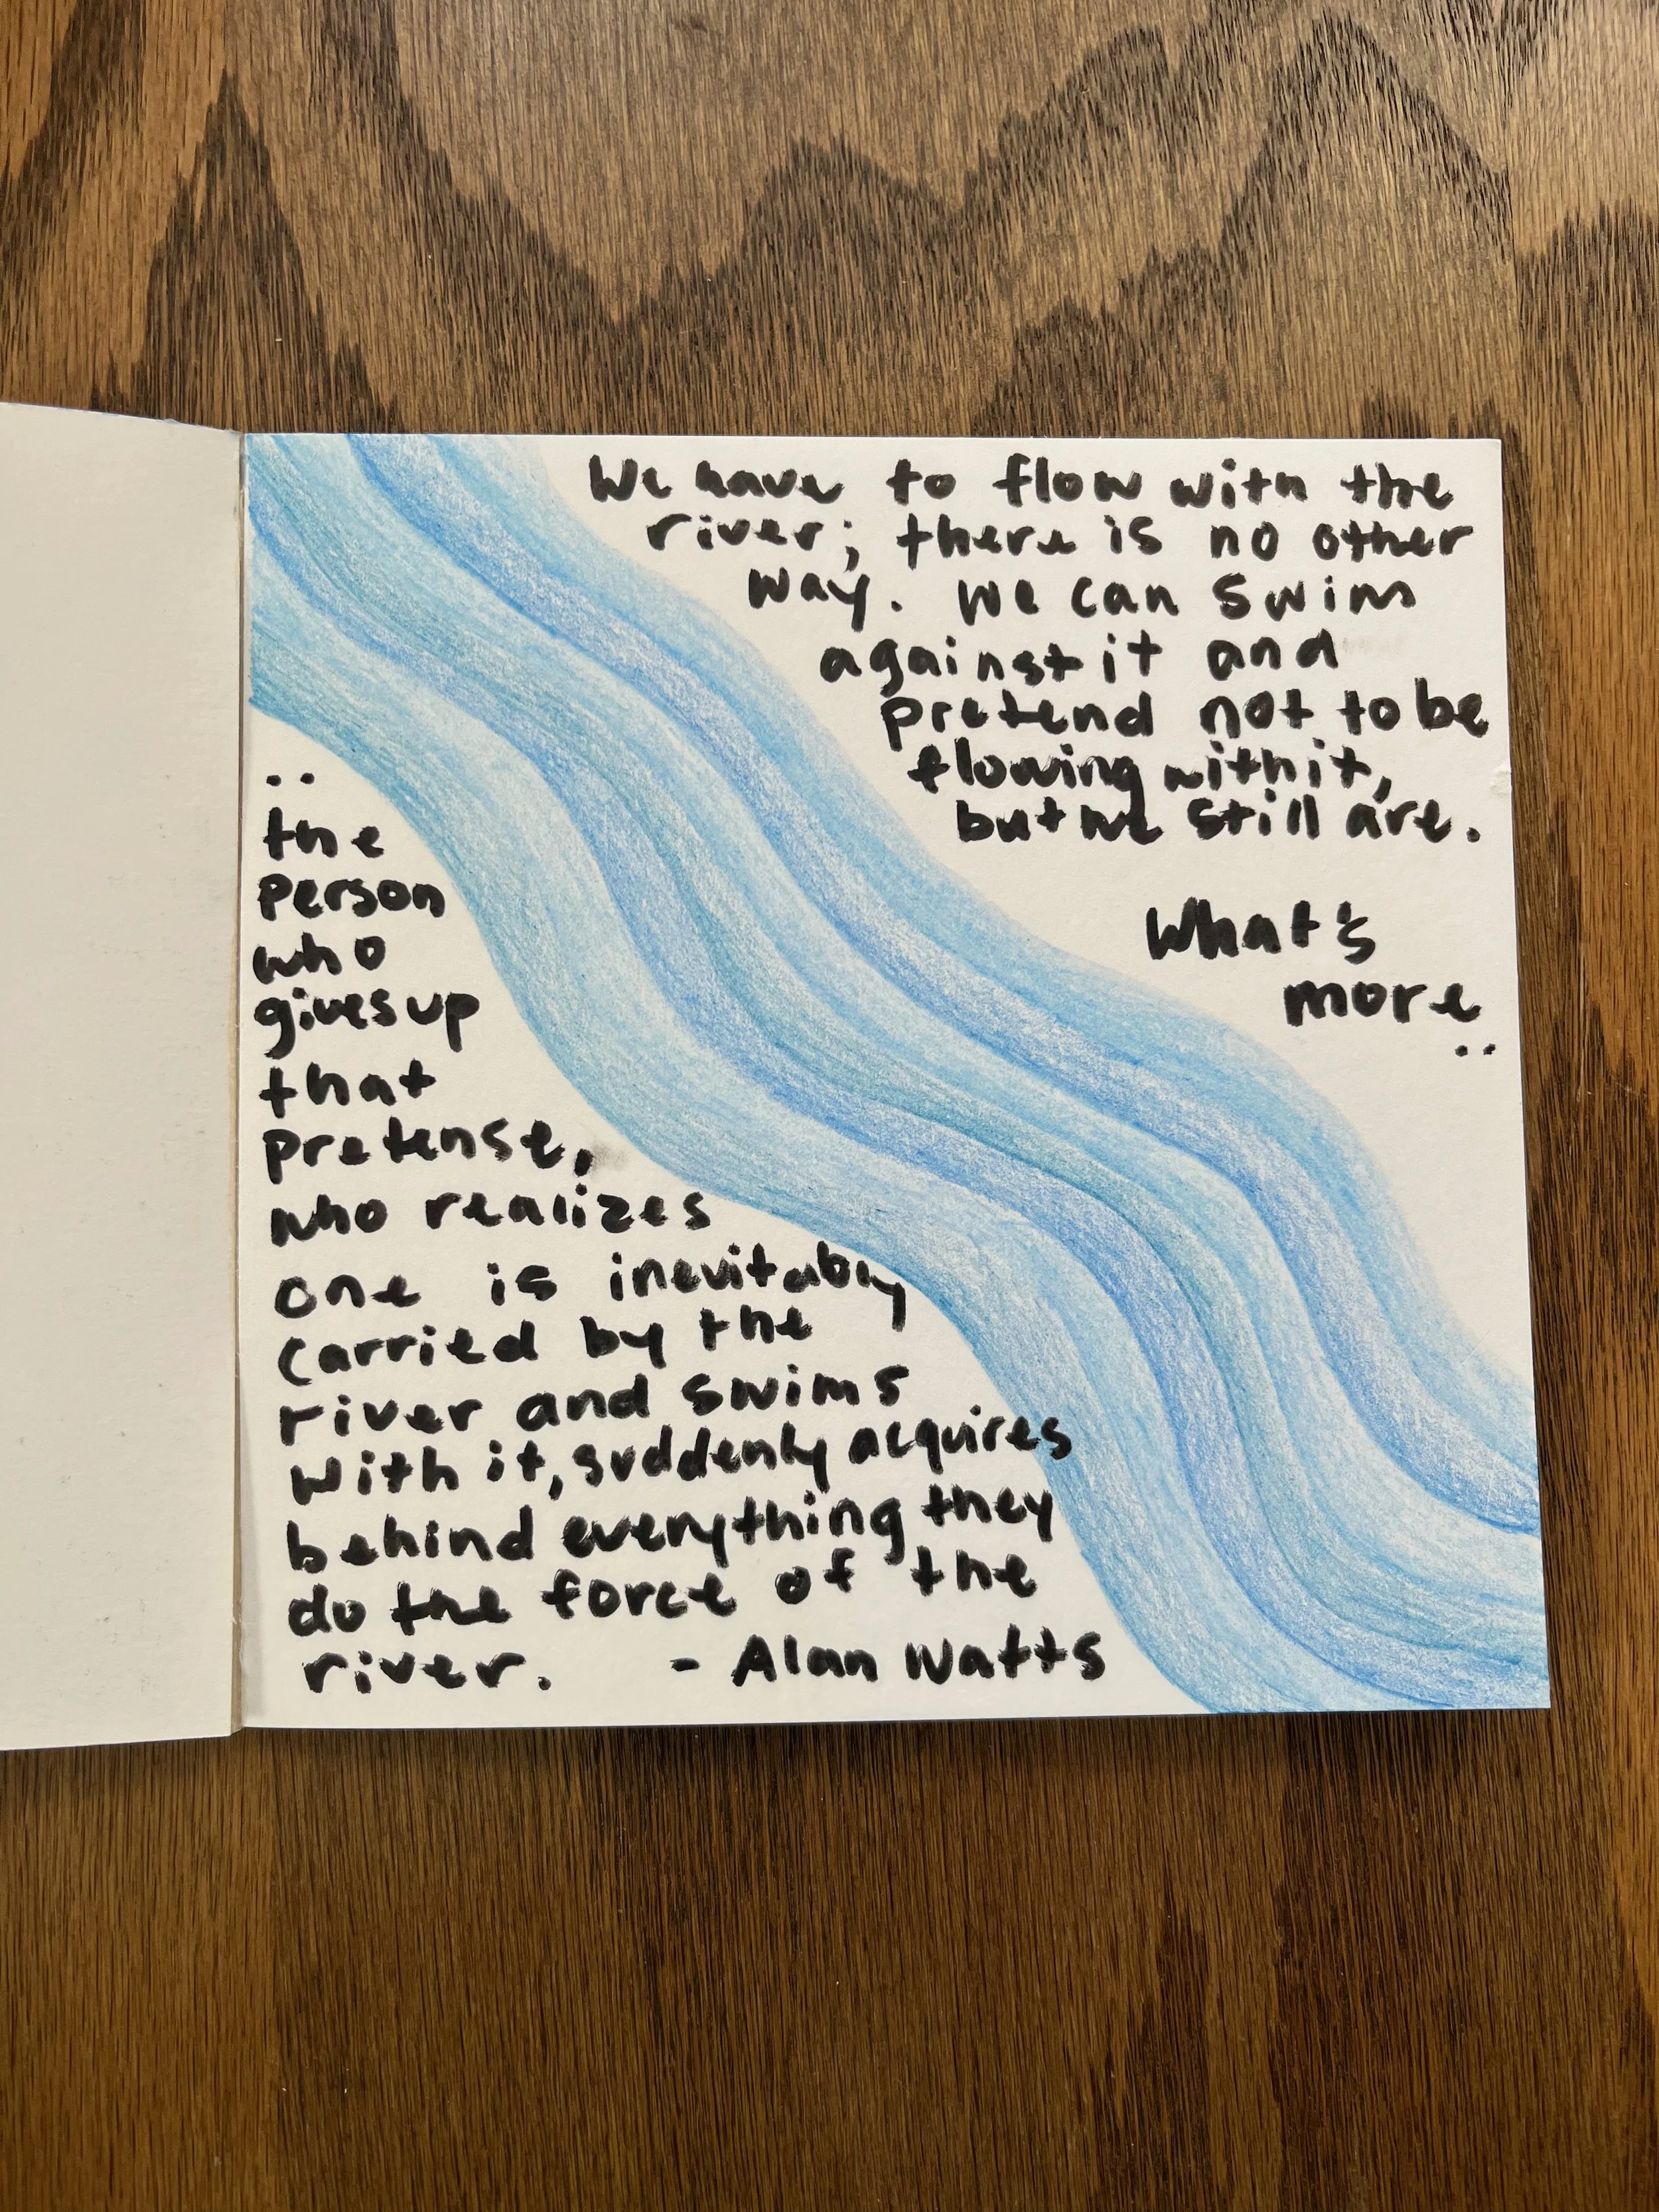 We have to flow with the
river; there is no other
way. We can swim
against it and
pretend not to be
flowing with it,
but we still are.
What's
more
..
..
the
Person
who
gives up
that
pretense,
who realizes
one is inevitably
carried by the
river and swims
with it, suddenly acquires
behind everything they
do the force of the
river. - Alan Watts